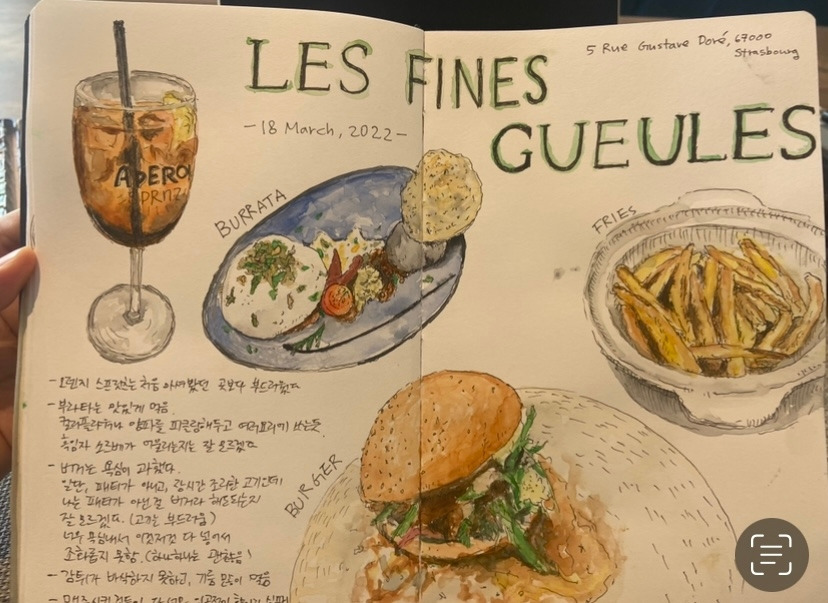 LES FINES GUEULES
5 Rue Gustave Doré, 67000
Strasbourg
-18 March, 2022-
APEROL
SPRITZ
BURRATA
FRIES
- 오렌지 스프릿츠는 처음 마셔봤던 곳보다 부드러웠다
- 부라타는 맛있게 먹음.
컬리플라워나 양파를 피클링해두고 여러요리에 쓰는듯.
흑임자 소르베가 어울리는지는 잘 모르겠다
- 버거는 욕심이 과했다.
일단, 패티가 아니고, 장시간 조리한 고기인데
나는 패티가 아닌걸 버거라 해도되는지
잘 모르겠다. (고기는 부드러움)
너무 욕심내서 이것저것 다 넣어서
조화롭지 못함. (하나하나는 괜찮음)
- 감튀가 바삭하지 못하고, 기름 많이 먹음
BURGER